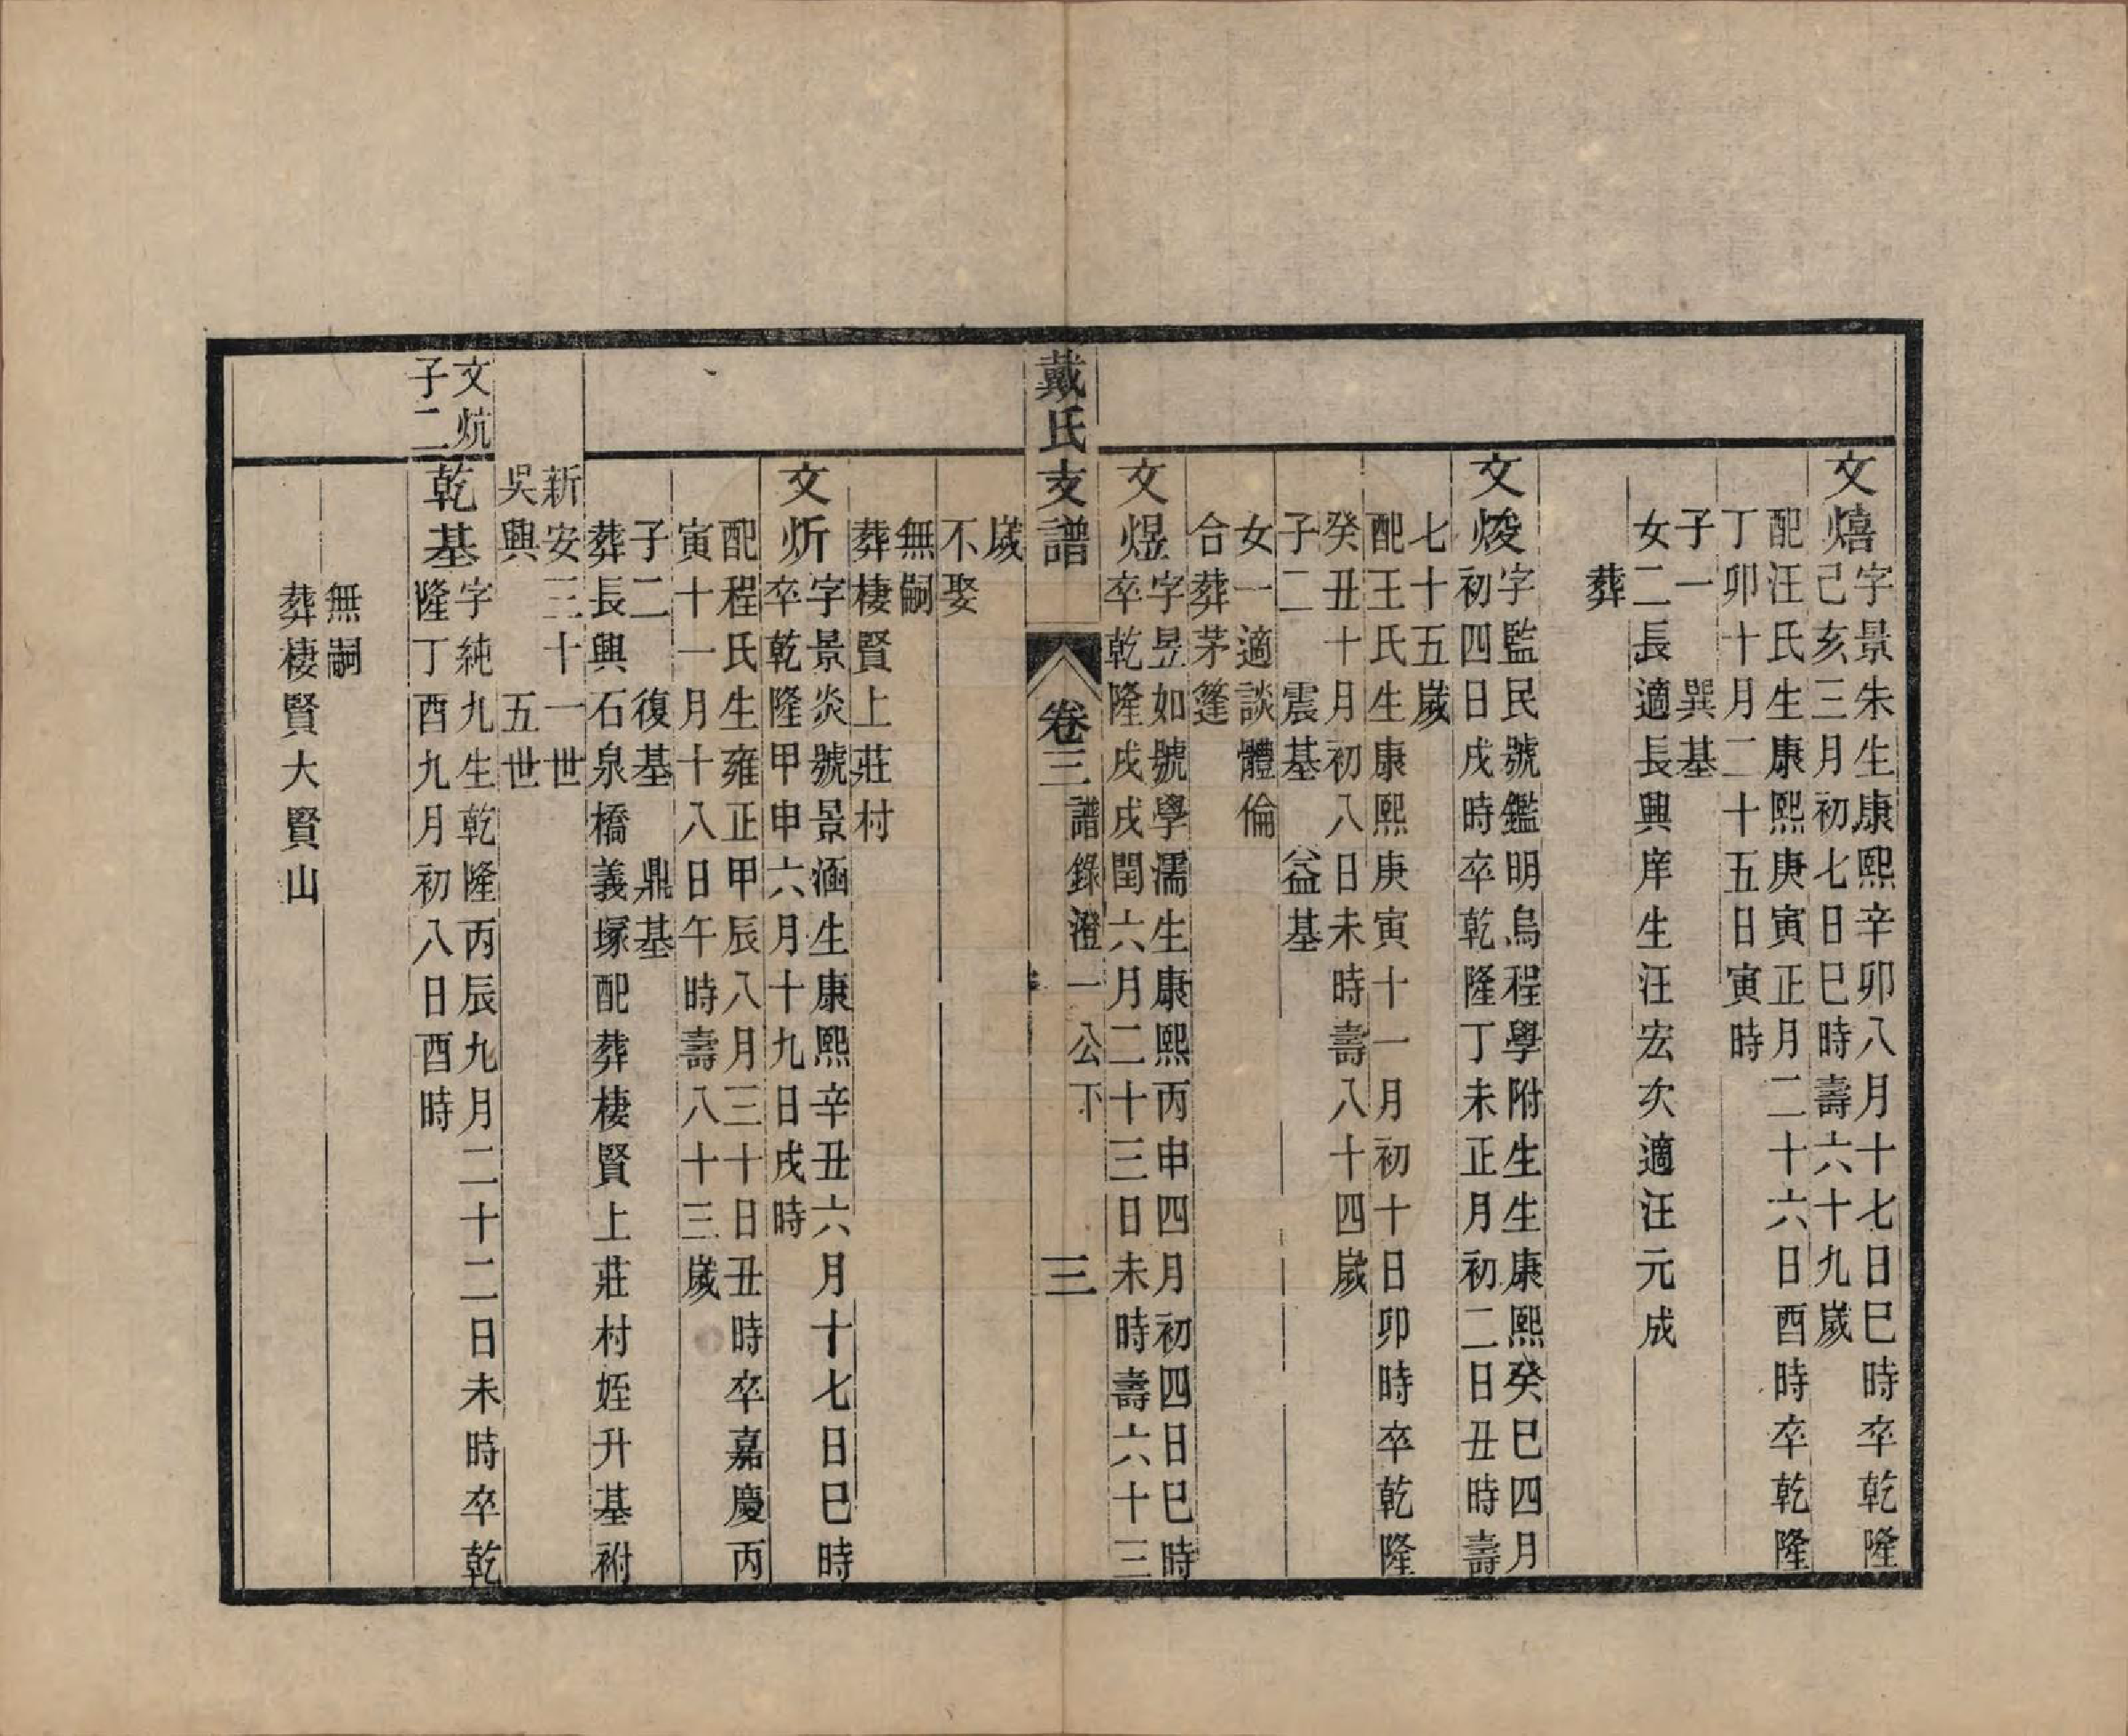 文熺
字景朱生康熙辛卯八月十七日巳時卒乾隆
己亥三月初七日巳時壽六十九歲
配汪氏生康熙庚寅正月二十六日酉時卒乾隆
丁卯十月二十五日寅時
子一　巽基
女二長適長興庠生汪宏次適汪元成
葬
文焌
字監民號鑑明烏程學附生生康熙癸巳四月
初四日戌時卒乾隆丁未正月初二日丑時壽
七十五歲
配王氏生康熙庚寅十一月初十日卯時卒乾隆
癸丑十月初八日未時壽八十四歲
子二　震基　益基
女一適談體倫
合葬茅篷
文煜
字昱如號學濡生康熙丙申四月初四日巳時
卒乾隆戊戌閏六月二十三日未時壽六十三
歲
不娶
無嗣
葬棲賢上莊村
戴氏支譜　卷三　譜錄澄一公下　三
文炘
字景炎號景涵生康熙辛丑六月十七日巳時
卒乾隆甲申六月十九日戌時
配程氏生雍正甲辰八月三十日丑時卒嘉慶丙
寅十一月十八日午時壽八十三歲
子二　復基　鼎基
葬長興石泉橋義塚配葬棲賢上莊村姪升基祔
新安三十一世
吳興　五世
文炕
子二
乾基
字純九生乾隆丙辰九月二十二日未時卒乾
隆丁酉九月初八日酉時
無嗣
葬棲賢大賢山